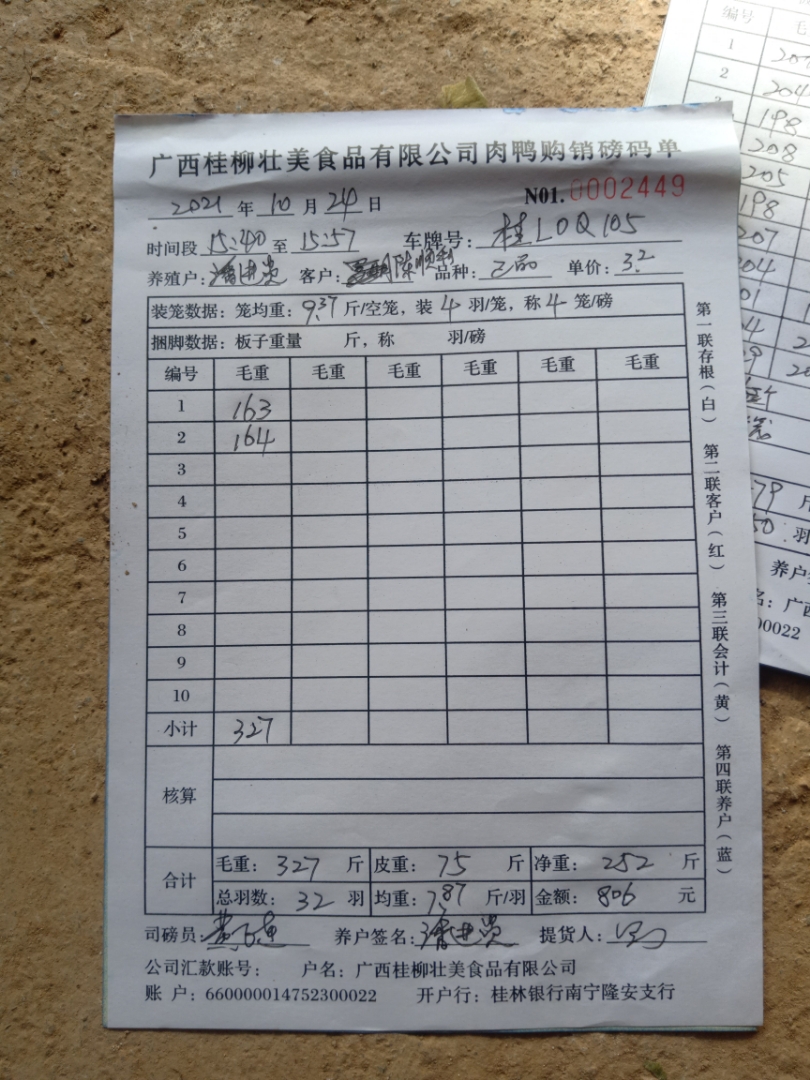 广西桂柳壮美食品有限公司肉鸭购销磅码单
2021 年 10 月 24 日 N01. 0002449
时间段 15:40 至 15:57 车牌号: 桂L0Q105
养殖户: 潘进贵 客户: 陈顺利 品种: 乙品 单价: 3.2
装笼数据: 笼均重: 9.37 斤/空笼, 装 4 羽/笼, 称 4 笼/磅
捆脚数据: 板子重量 斤, 称 羽/磅
编号 毛重 毛重 毛重 毛重 毛重 毛重
1 163
2 164
3
4
5
6
7
8
9
10
小计 327
核算
合计
毛重: 327 斤 皮重: 75 斤 净重: 252 斤
总羽数: 32 羽 均重: 7.87 斤/羽 金额: 806 元
司磅员: 养户签名: 潘进贵 提货人:
公司汇款账号: 户名: 广西桂柳壮美食品有限公司
账 户: 660000014752300022 开户行: 桂林银行南宁隆安支行
第一联存根(白) 第二联客户(红) 第三联会计(黄) 第四联养户(蓝)
编号
1
2
204
198
208
205
198
207
204